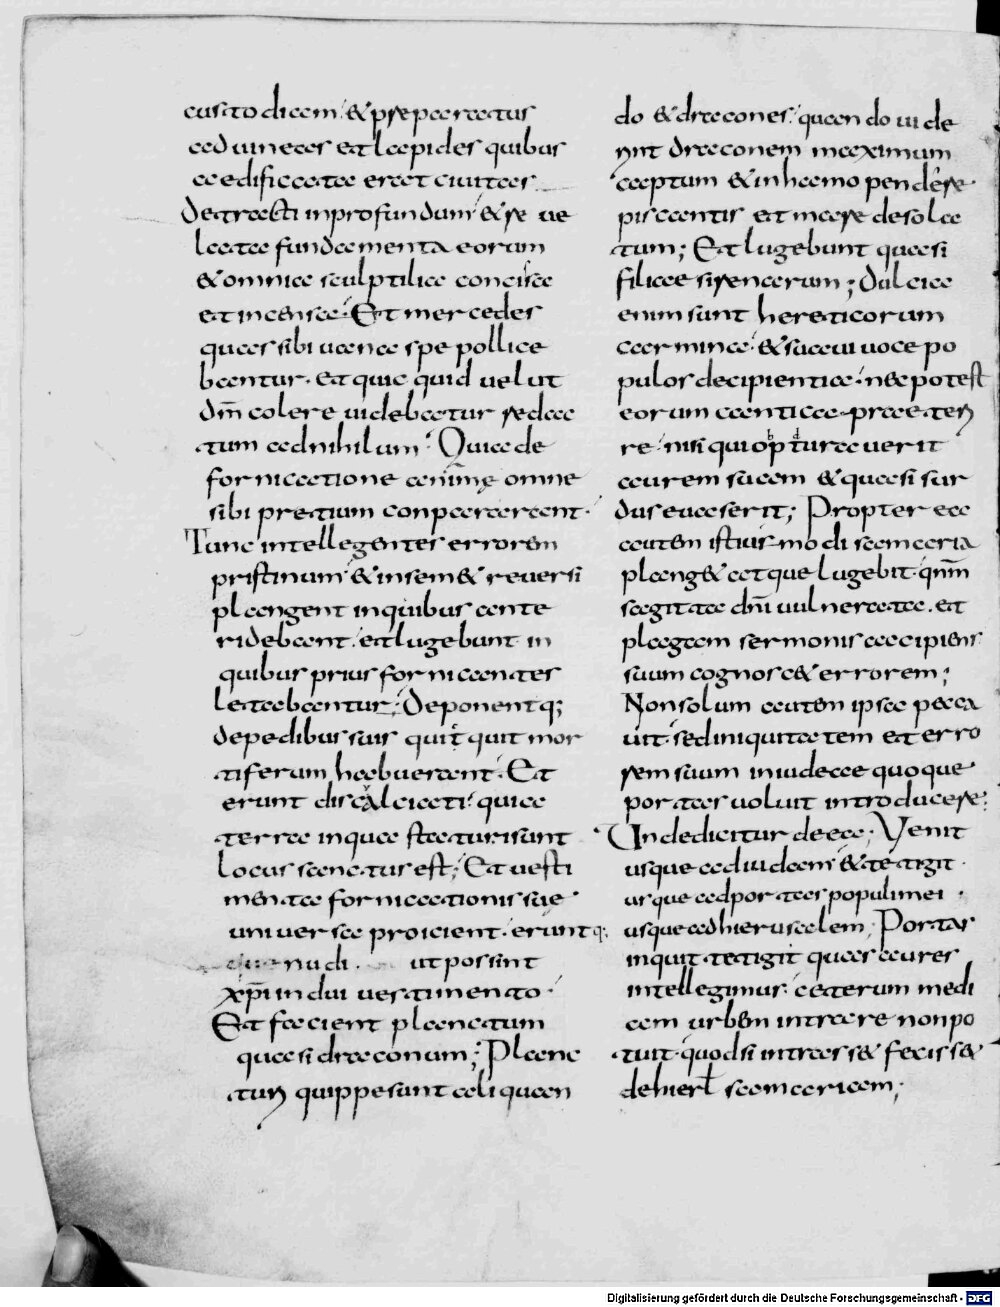 custodiam · & praeparatus
ad uineas et lapides quibus
aedificata erat ciuitas
Detracti in profundum · & re ue
lata fundamenta eorum
& omnia sculptilia concisa
et incensa · Et mercedes
quas sibi uana spe pollice
bantur · et quic quid uelut
dm̄ colere uidebatur redac
tum ad nihilum · Quia de
fornicatione animę omne
sibi pretium conpararant ·
Tunc intellegentes errorem
pristinum · & in sem& reuersi
plangent in quibus ante
ridebant · et lugebunt in
quibus prius fornicantes
laetabantur; Deponentq;
de pedibus suis quit quit mor
tiferum habuerant · Et
erunt discalciati · quia
terra in qua staturi sunt
locus sanctus est; Et uesti
menta fornicationis suae
uniuersa proicient · eruntq;
nudi ut possint
xp̄i indui uestimento ·
Et facient planctum
quasi draconum; Planc
tum quippe sunt celi quan
do & dracones · quando uide
runt draconem maximum
captum & in hamo pendere
piscantis et mare desola
tum; Et lugebunt quasi
filiae sirenarum; Dulcia
enim sunt hereticorum
carmina · & suaui uoce po
pulos decipientia · nec potest
eorum cantica praeteri
re · nisi qui obdurauerit
aurem suam & quasi sur
dus euaserit; Propter ea
autem istius modi samaria
plang& atque lugebit · qnm̄
sagitta dn̄i uulnerata · et
plagam sermonis accipiens
suum cognosc& errorem;
Non solum autem ipsa pecca
uit · sed iniquitatem et erro
rem suum in iudaeae quoque
portas uoluit introducere ·
Unde dicitur de ea; Venit
usque ad iudam · & tetigit
usque ad portas populi mei ·
usque ad hierusalem; Portas
inquit tetigit quas aures
intellegimus · ceterum medi
am urbem intrare non po
tuit · quod si intrass& feciss&
de hierl̄ samariam;